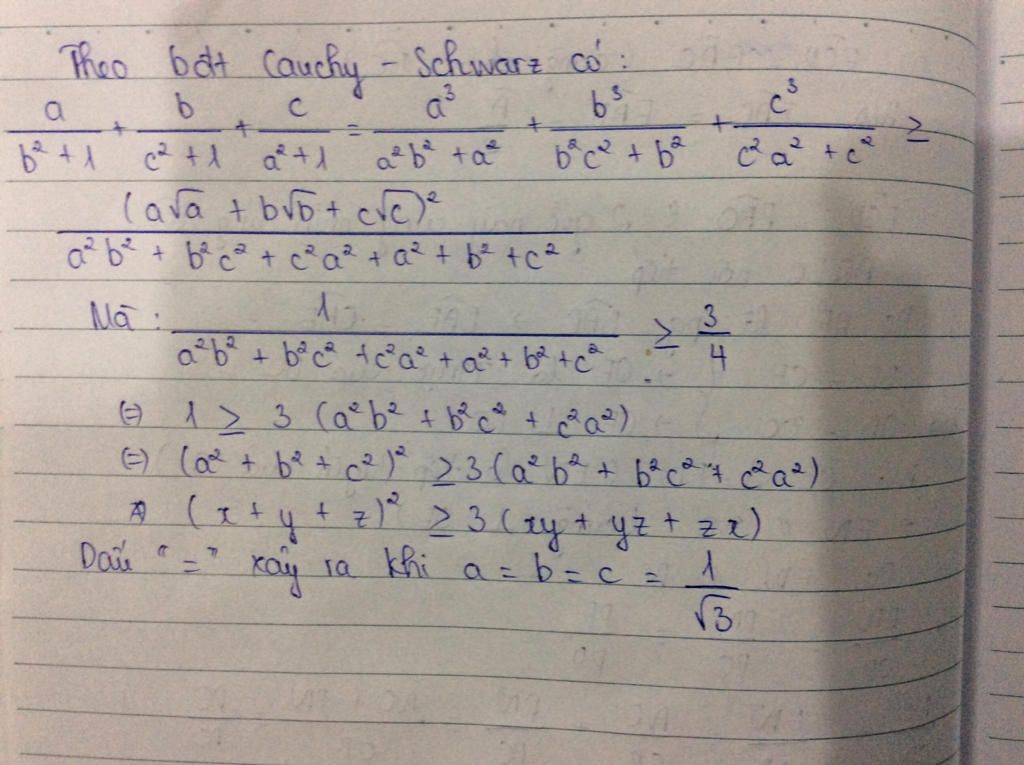 Theo bđt Cauchy - Schwarz có:
a/(b² + 1) + b/(c² + 1) + c/(a² + 1) = a³/(a²b² + a²) + b³/(b²c² + b²) + c³/(c²a² + c²) ≥
(a√a + b√b + c√c)²/(a²b² + b²c² + c²a² + a² + b² + c²)
Mà: 1/(a²b² + b²c² + c²a² + a² + b² + c²) ≥ 3/4
(=) 1 ≥ 3 (a²b² + b²c² + c²a²)
(=) (a² + b² + c²)² ≥ 3(a²b² + b²c² + c²a²)
(x + y + z)² ≥ 3(xy + yz + zx)
Dấu "=" xảy ra khi a = b = c = 1/√3